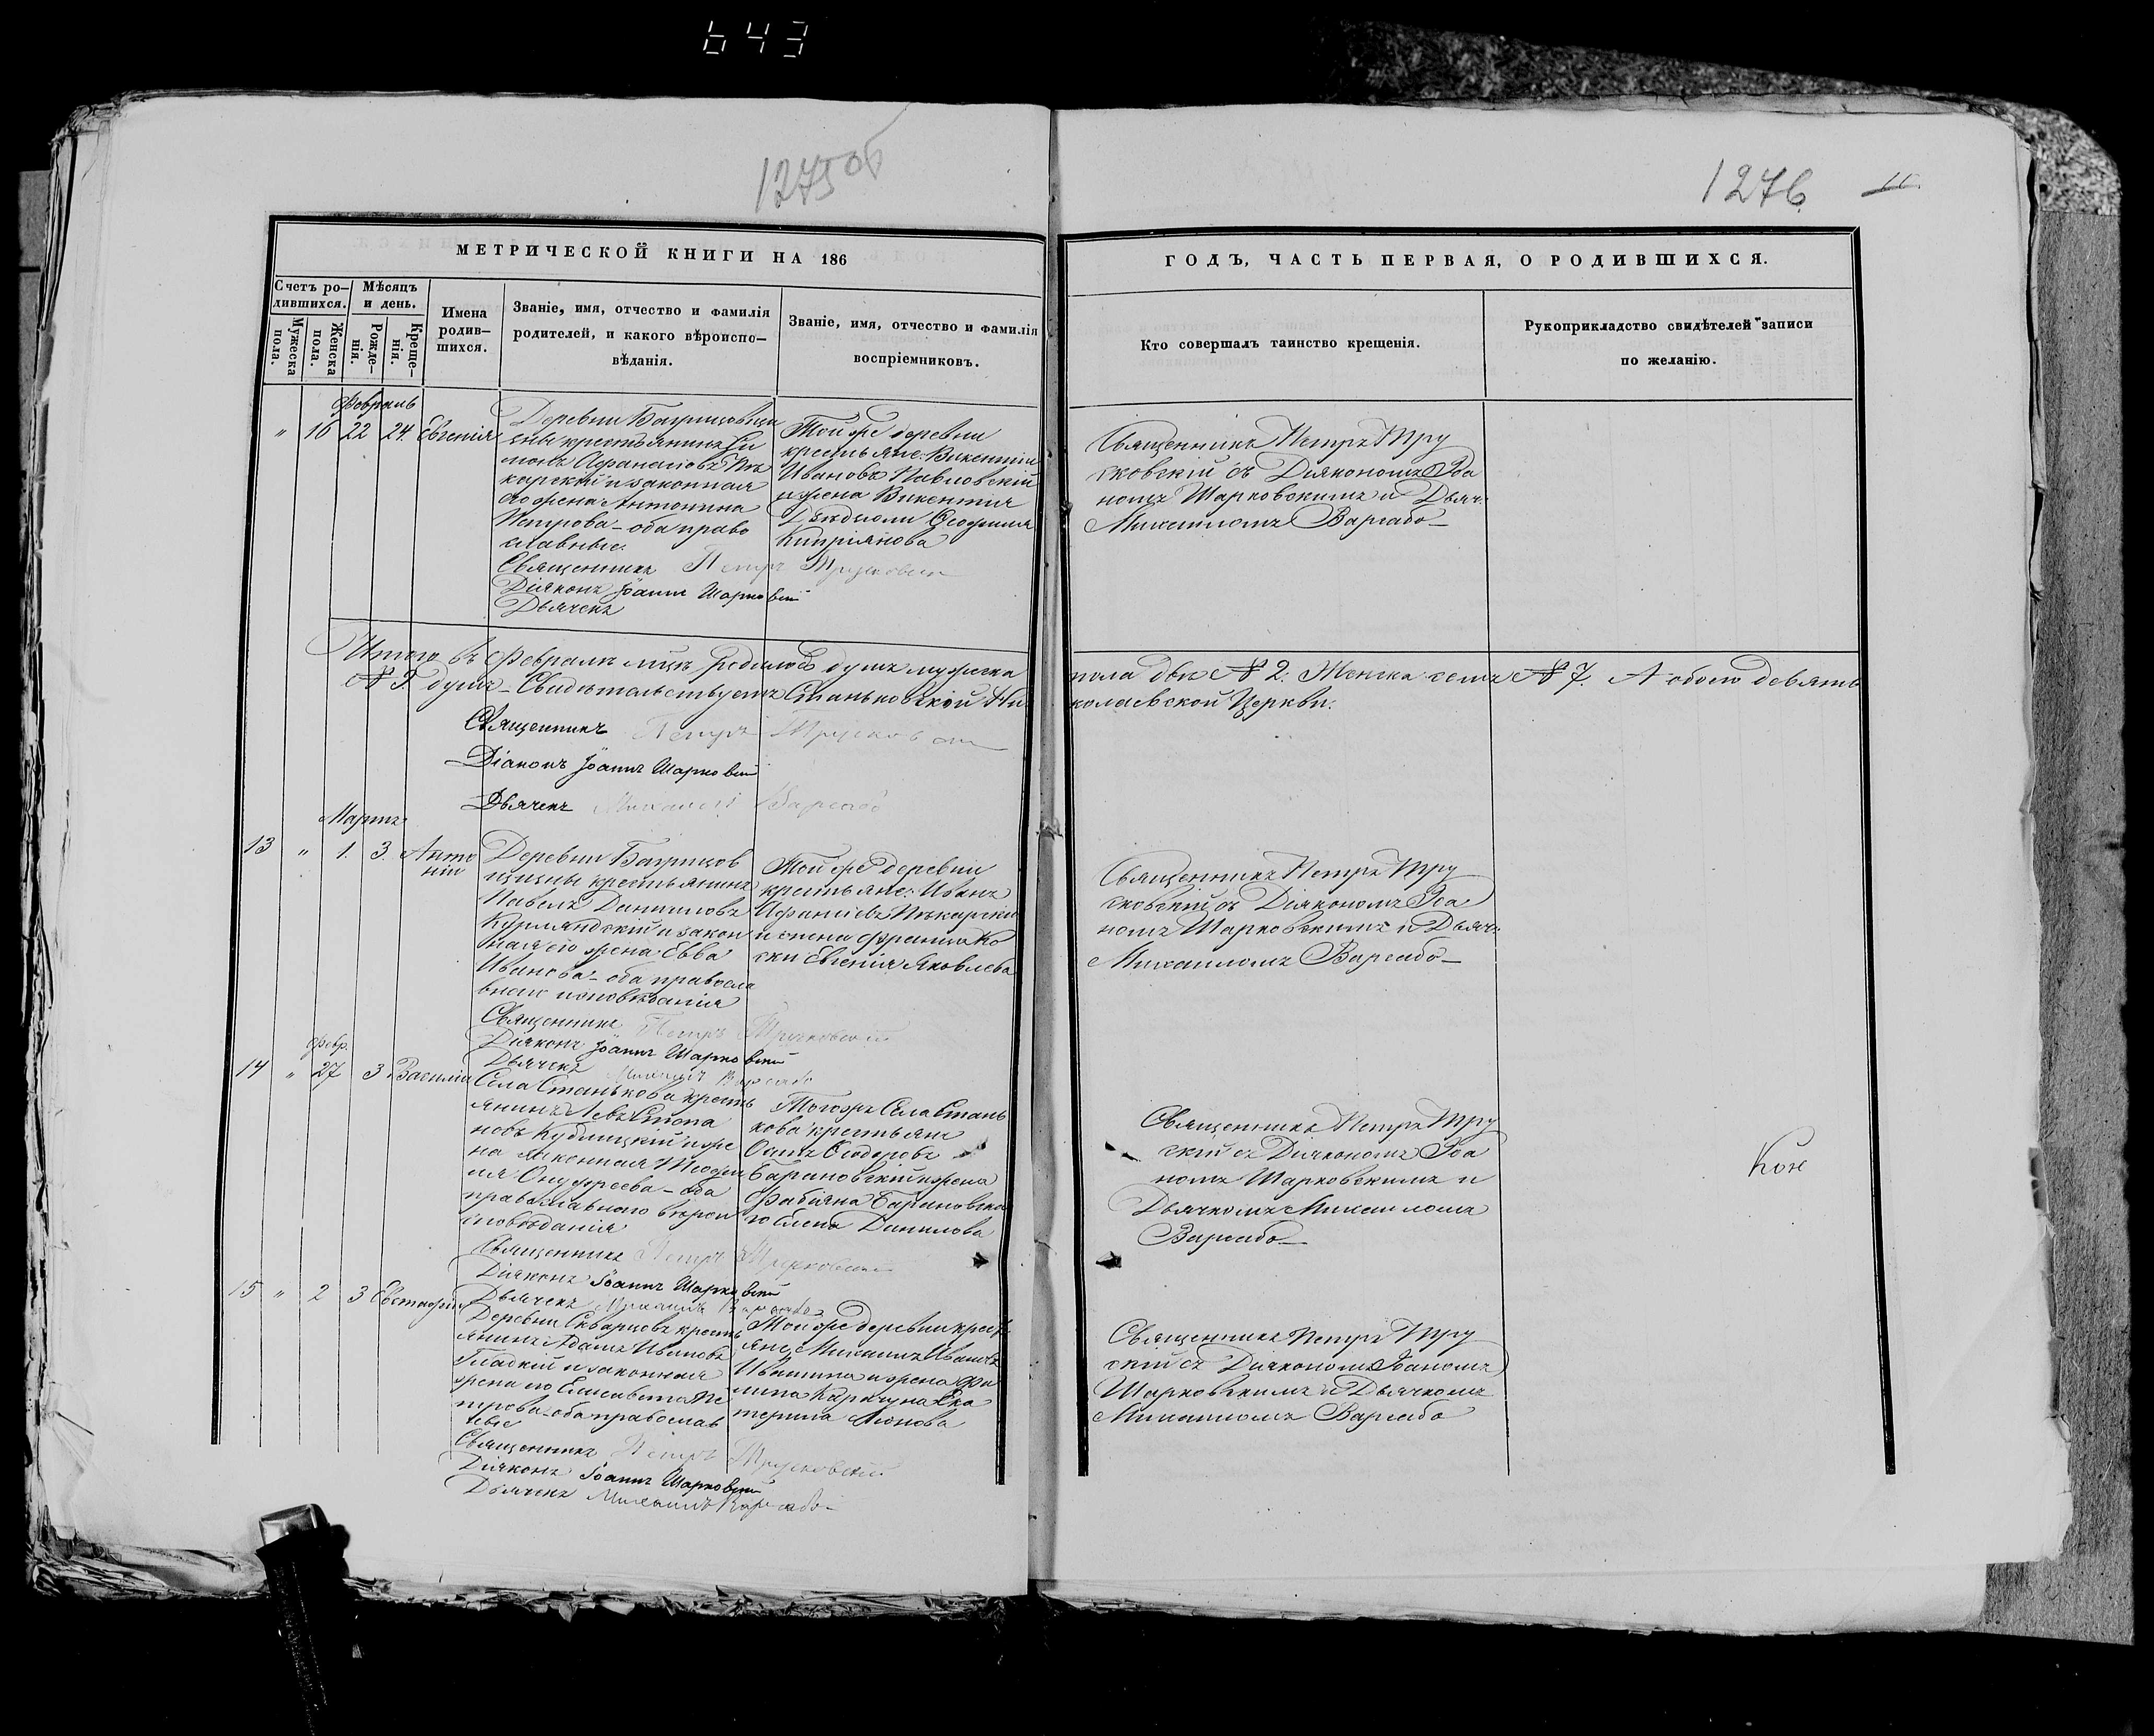 643
1275 об
1276
11
МЕТРИЧЕСКОЙ КНИГИ НА 186
ГОДЪ, ЧАСТЬ ПЕРВАЯ, О РОДИВШИХСЯ.
Счетъ ро–
дившихся.
Мужеска
пола.
Женска
пола.
Мѣсяцъ
и день.
Рожде–
нія.
Креще–
нія.
Имена
родив–
шихся.
Званіе, имя, отчество и фамилія
родителей, и какого вѣроиспо–
вѣданія.
Званіе, имя, отчество и фамилія
воспріемниковъ.
Кто совершалъ таинство крещенія.
Рукоприкладство свидѣтелей записи
по желанію.
Февраль
" 16 22 24. Евгенія
Деревни
крестьянинъ Си
монъ Афанасіовъ Пѣ
карскій и законная
его жена Антонина
Петрова – оба право
славные.
Священникъ Петръ Трусковскій
Діяконъ Іоаннъ Шарковскій
Дьячекъ
Той же деревни
крестьяне: Викентій
Ивановъ Павловскій
и жена Викентія
Кипріянова
Священникъ Петръ Тру
сковскій съ Діякономъ Іоа
номъ Шарковскимъ и Дьяч.
Михаиломъ Варсабо –
Итого въ Февралѣ м-цѣ родилось душъ мужеска
пола двѣ № 2. Женска семь № 7. А обоего девять
№ 9. душъ – Свидѣтельствуемъ Станьковской Ни
колаевской Церкви.
Священникъ Петръ Трусковскій
Діаконъ Іоаннъ Шарковскій
Дьячекъ Михаилъ Варсабо
Мартъ
13 " 1. 3. Анто
ній
Деревни Багрицов
щизны крестьянинъ
Павелъ Даниловъ
Курляндскій и закон
ная его жена Евва
Иванова – оба правосла
вная исповѣданія
Священникъ Петръ Трусковскій
Діяконъ Іоаннъ Шарковскій
Дьячекъ Михаилъ Варсабо
Той же деревни
крестьяне: Иванъ
Афанасіевъ Пѣкарскій
и жена Франца Ко
ски Евгенія Яковлева
Священникъ Петръ Тру
сковскій съ Діякономъ Іоа
номъ Шарковскимъ и Дьяч.
Михаиломъ Варсабо –
Февр.
14 " 27 3 Василій
Села Станькова кресть
янинъ Левъ Степа
новъ Кублицкій и же
на законная Теофи
ля Онуфреева – оба
православного вѣрои
сповѣданія
Священникъ Петръ Трусковскій
Діяконъ Іоаннъ Шарковскій
Дьячекъ Михаилъ Варсабо
Тогожъ Села Стань
кова крестьяне
Осипъ Ѳеодоровъ
Барановскій и жена
Фабіяна Барановска
го Елена Данилова
Священникъ Петръ Тру
скій съ Діякономъ Іоа
номъ Шарковскимъ и
Дьячкомъ Михаиломъ
Варсабо –
15 " 2 3 Евстафій
Деревни Скварцевъ кресть
янинъ Адамъ Ивановъ
Гладкій и законная
жена его Елисавета Пе
трова – оба православ
Священникъ Петръ Трусковскій
Діяконъ Іоаннъ Шарковскій
Дьячекъ Михаилъ Варсабо –
Той же деревни крест
яне Михаилъ Ивановъ
и жена Фи
липа Карачуна Ека
терина
Священникъ Петръ Тру
скій съ Діякономъ Іоаномъ
Шарковскимъ и Дьячкомъ
Михаиломъ Варсабо